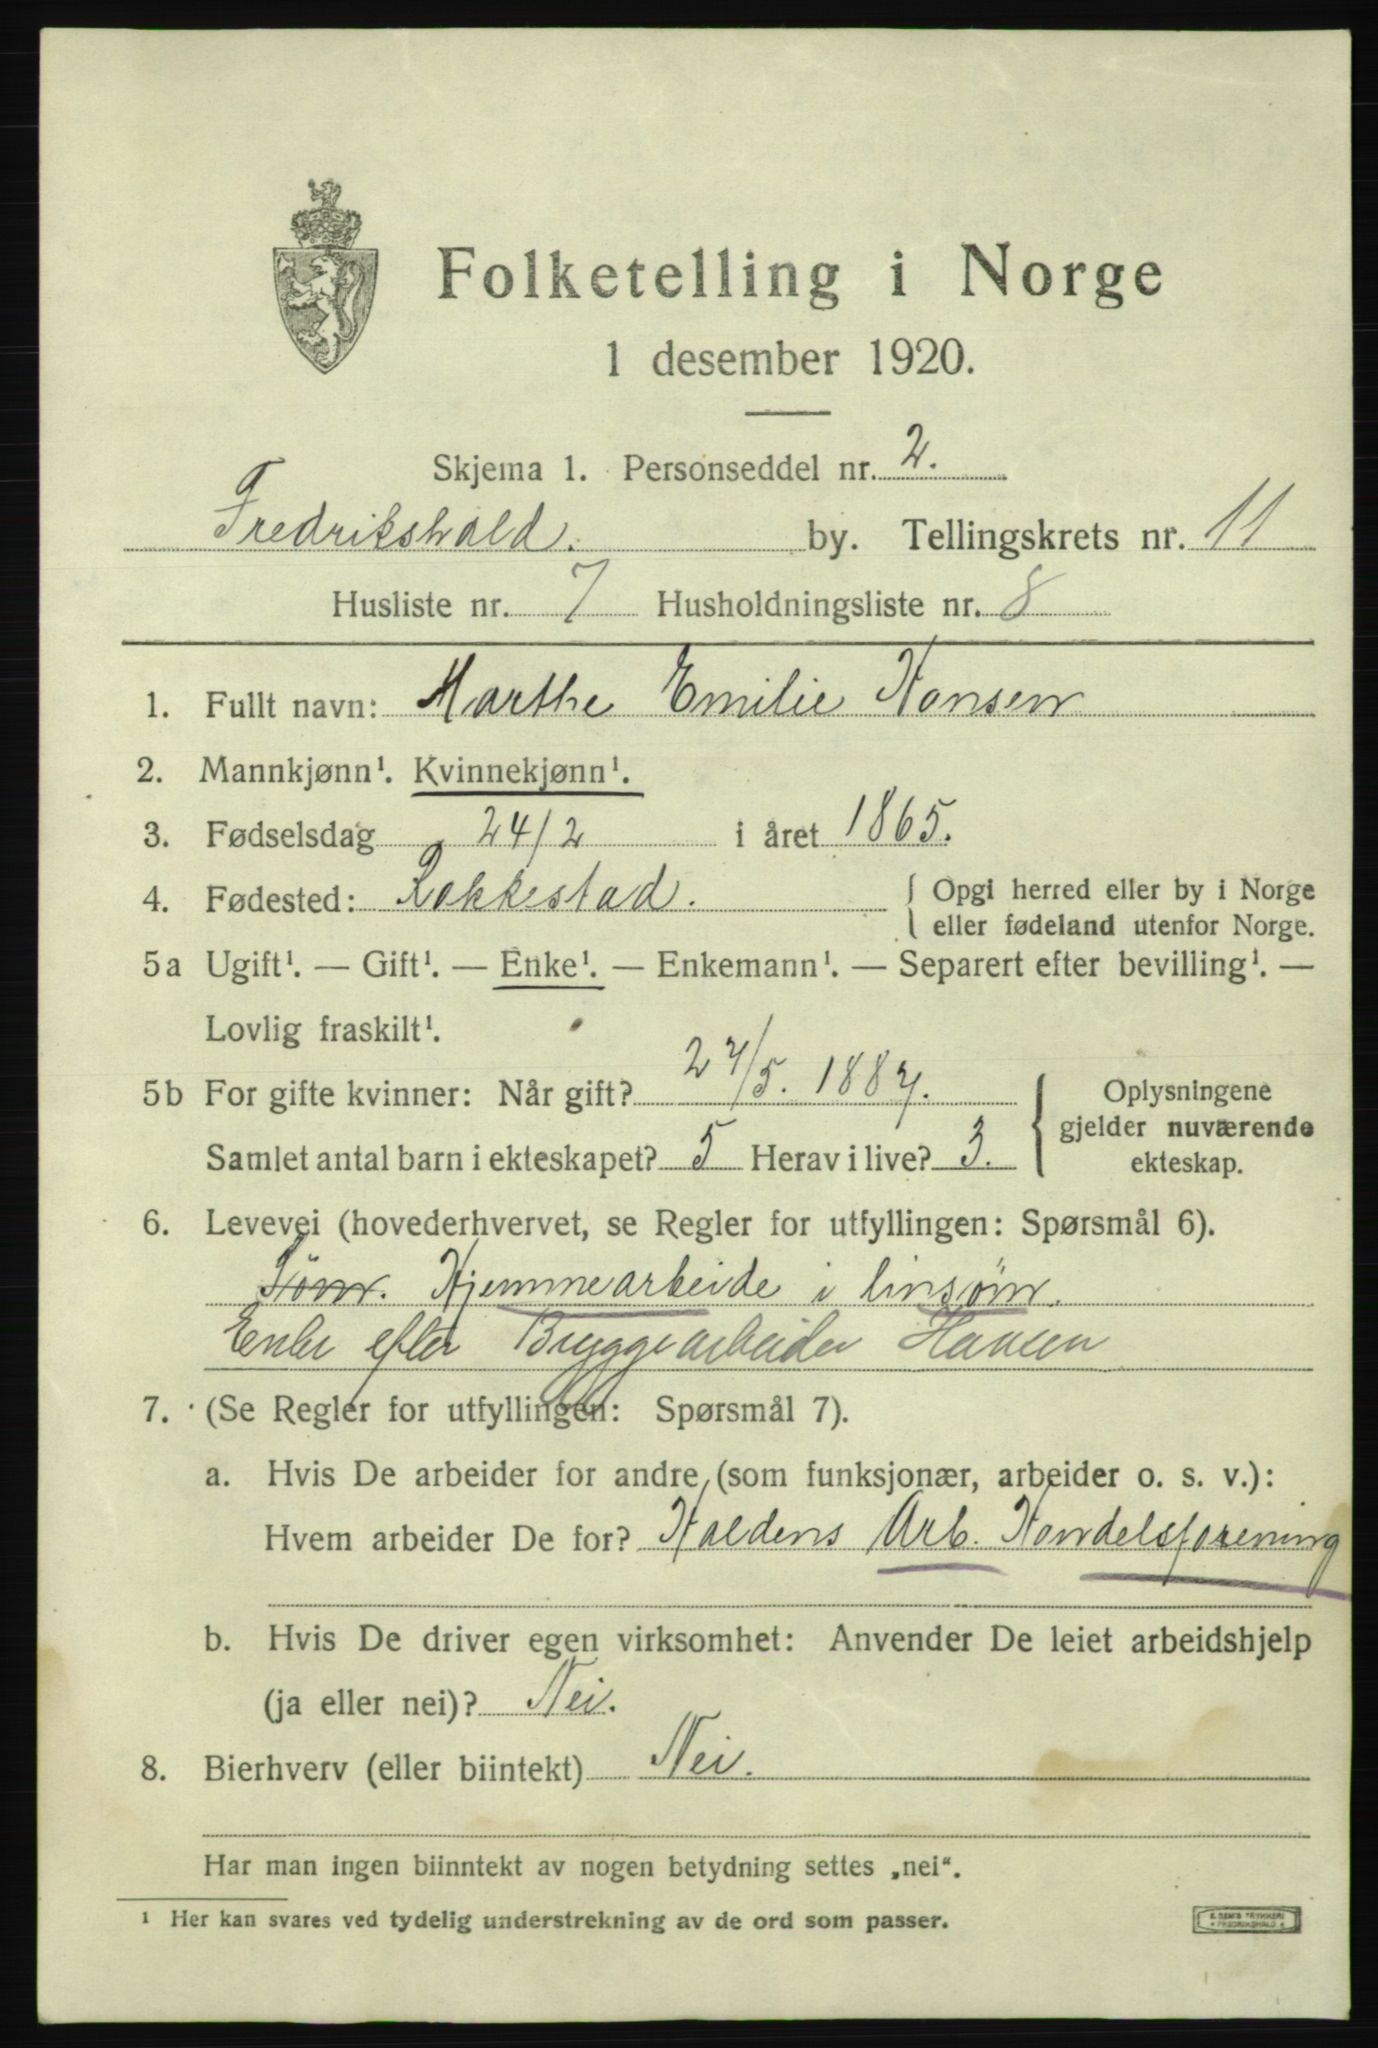 Folketelling i Norge
1 desember 1920.
Skjema 1. Personseddel nr. 2.
Fredrikshald. by. Tellingskrets nr. 11
Husliste nr. 7 Husholdningsliste nr. 8
1. Fullt navn: Marthe Emilie Hansen
2. Mannkjønn¹. Kvinnekjønn¹.
3. Fødselsdag 24/2 i året 1865.
4. Fødested: Rakkestad. { Opgi herred eller by i Norge
eller fødeland utenfor Norge.
5a Ugift¹. — Gift¹. — Enke¹. — Enkemann¹. — Separert efter bevilling¹. —
Lovlig fraskilt¹.
5b For gifte kvinner: Når gift? 27/5. 1887. { Oplysningene
gjelder nuværende
Samlet antal barn i ekteskapet? 5 Herav i live? 3. ekteskap.
6. Levevei (hovederhvervet, se Regler for utfyllingen: Spørsmål 6).
Hjemmearbeide i linsøm.
Enke efter Bryggearbeider Hansen
7. (Se Regler for utfyllingen: Spørsmål 7).
a. Hvis De arbeider for andre (som funksjonær, arbeider o. s. v.):
Hvem arbeider De for? Haldens Arb. Handelsforening
b. Hvis De driver egen virksomhet: Anvender De leiet arbeidshjelp
(ja eller nei)? Nei.
8. Bierhverv (eller biintekt) Nei.
Har man ingen biinntekt av nogen betydning settes „nei“.
¹ Her kan svares ved tydelig understrekning av de ord som passer.